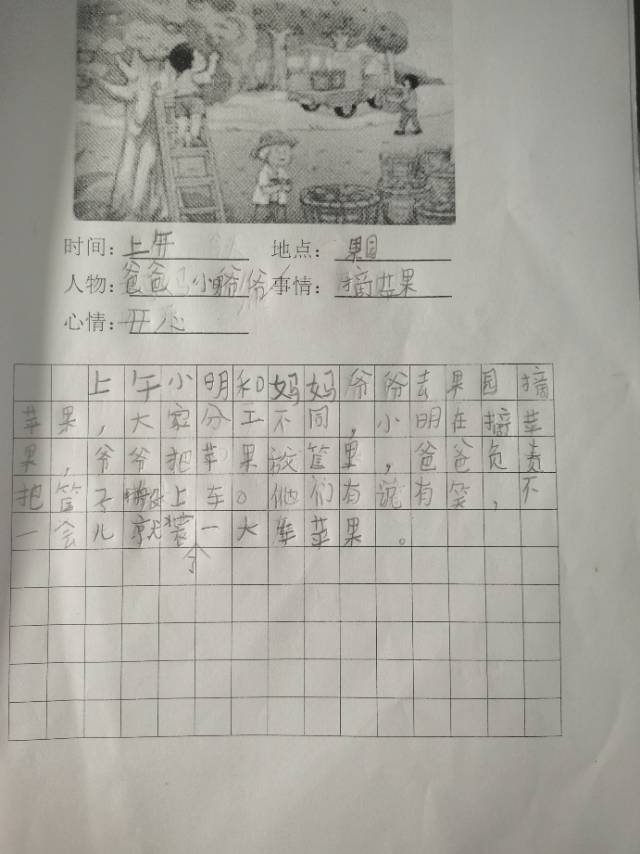 时间：上午 地点：果园
人物：爸爸 小明 爷爷 事情：摘苹果
心情：开心
上午小明和妈妈爷爷去果园摘
苹果，大家分工不同，小明在摘苹
果，爷爷把苹果放筐里，爸爸负责
把筐子搬上车。他们有说有笑，不
一会儿就装了一大车苹果。